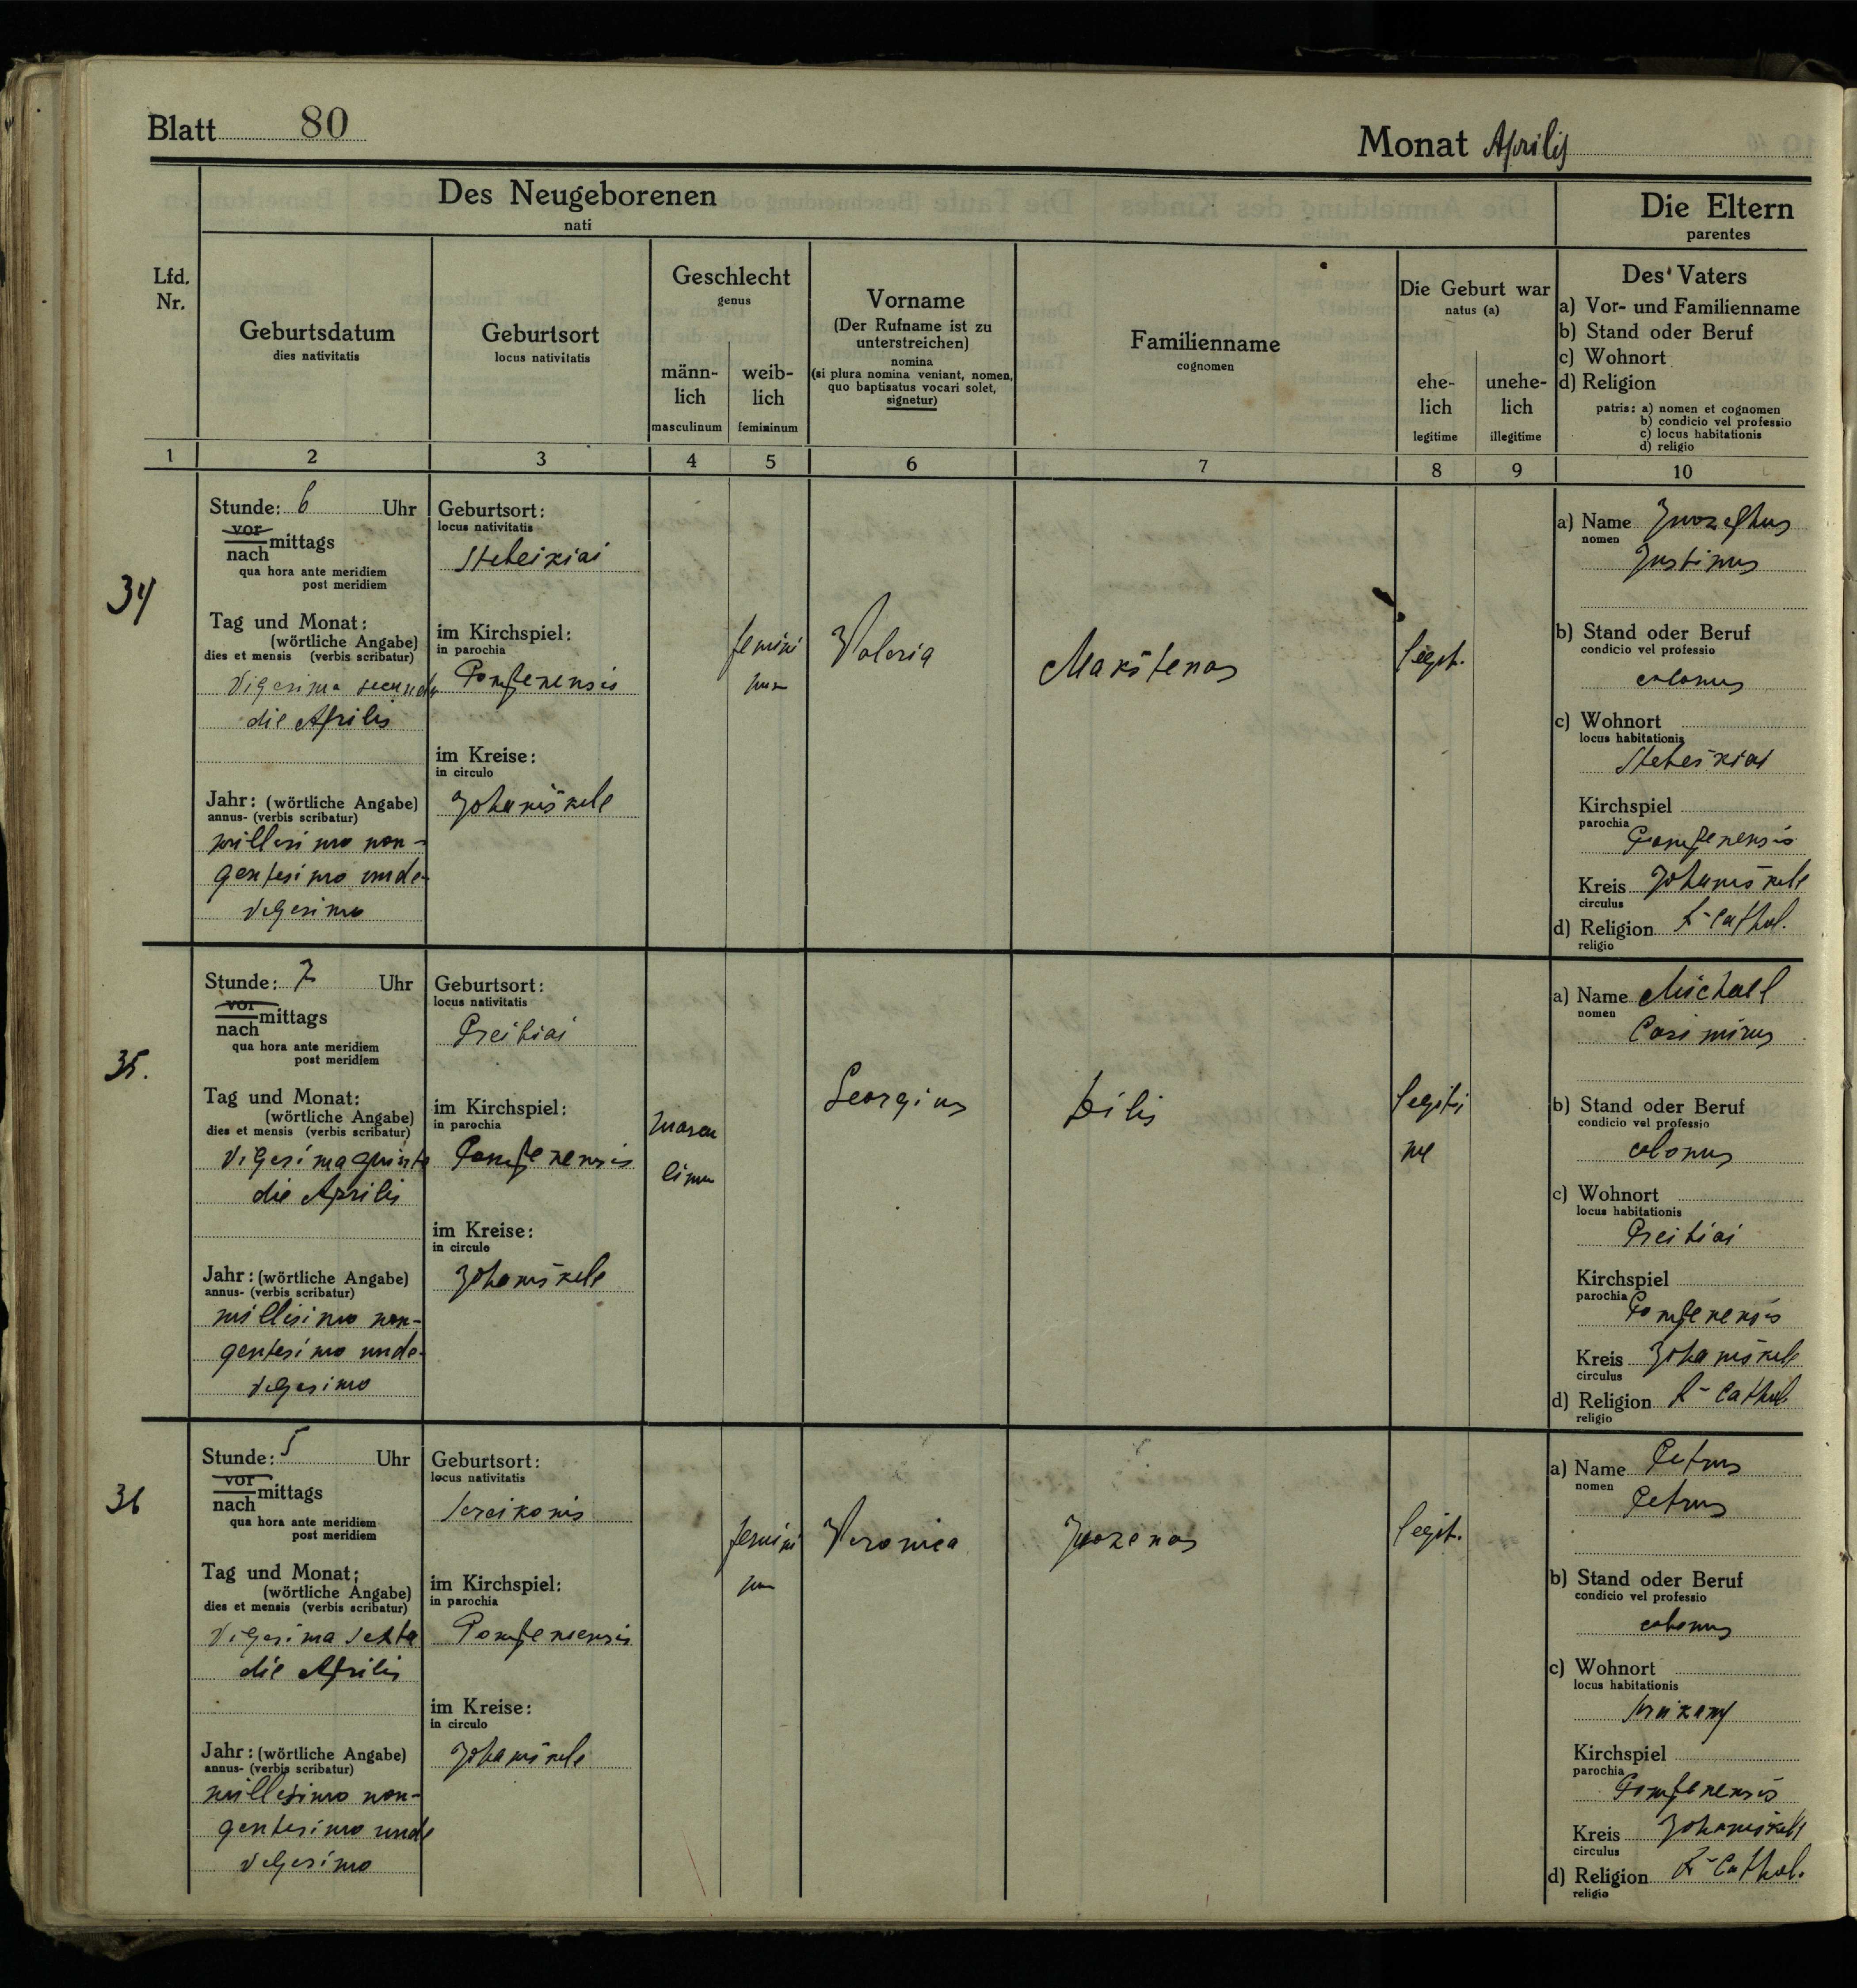 Blatt 80
Monat Aprilis
Des Neugeborenen
nati
Die Eltern
parentes
Lfd.
Nr.
Geburtsdatum
dies nativitatis
Geburtsort
locus nativitatis
Geschlecht
genus
männ-
lich
masculinum
weib-
lich
femininum
Vorname
(Der Rufname ist zu
unterstreichen)
nomina
(si plura nomina veniant, nomen,
quo baptisatus vocari solet,
signetur)
Familienname
cognomen
Die Geburt war
natus (a)
ehe-
lich
legitime
unehe-
lich
illegitime
Des Vaters
a) Vor- und Familienname
b) Stand oder Beruf
c) Wohnort
d) Religion
patris: a) nomen et cognomen
b) condicio vel professio
c) locus habitationis
d) religio
1 2 3 4 5 6 7 8 9 10
34
Stunde: 6 Uhr
vor
nach mittags
qua hora ante meridiem
post meridiem
Tag und Monat:
(wörtliche Angabe)
dies et mensis (verbis scribatur)
Vigesima secunda
die Aprilis
Jahr: (wörtliche Angabe)
annus- (verbis scribatur)
millesimo non-
gentesimo unde-
vigesimo
Geburtsort:
locus nativitatis
im Kirchspiel:
in parochia
im Kreise:
in circulo
Johaniškele
femini
num
Valeria
Makštenas
legit.
a) Name
nomen
Justinus
b) Stand oder Beruf
condicio vel professio
colonus
c) Wohnort
locus habitationis
Kirchspiel
parochia
Kreis Johaniškele
circulus
d) Religion R-Cathol.
religio
35.
Stunde: 7 Uhr
vor
nach mittags
qua hora ante meridiem
post meridiem
Tag und Monat:
(wörtliche Angabe)
dies et mensis (verbis scribatur)
Vigesima quinta
die Aprilis
Jahr: (wörtliche Angabe)
annus- (verbis scribatur)
millesimo non-
gentesimo unde-
vigesimo
Geburtsort:
locus nativitatis
im Kirchspiel:
in parochia
im Kreise:
in circulo
Johaniškele
mascu
linum
Georgius
legiti
me
a) Name Michael
nomen
Casimirus
b) Stand oder Beruf
condicio vel professio
colonus
c) Wohnort
locus habitationis
Kirchspiel
parochia
Kreis Johaniškele
circulus
d) Religion R-Cathol.
religio
36
Stunde: 5 Uhr
vor
nach mittags
qua hora ante meridiem
post meridiem
Tag und Monat:
(wörtliche Angabe)
dies et mensis (verbis scribatur)
Vigesima sexta
die Aprilis
Jahr: (wörtliche Angabe)
annus- (verbis scribatur)
millesimo non-
gentesimo unde
vigesimo
Geburtsort:
locus nativitatis
im Kirchspiel:
in parochia
im Kreise:
in circulo
Johaniškele
femini
num
Veronica
Juozenas
legit.
a) Name Petrus
nomen
Petrus
b) Stand oder Beruf
condicio vel professio
colonus
c) Wohnort
locus habitationis
Kirchspiel
parochia
Kreis Johaniškele
circulus
d) Religion R-Cathol.
religio